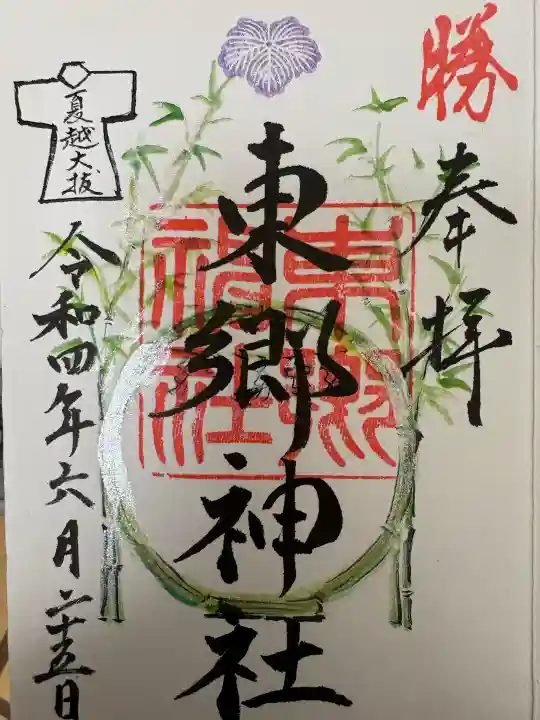 勝
奉拝
東郷神社
東郷神社
夏越大拔
令和四年六月二十五日